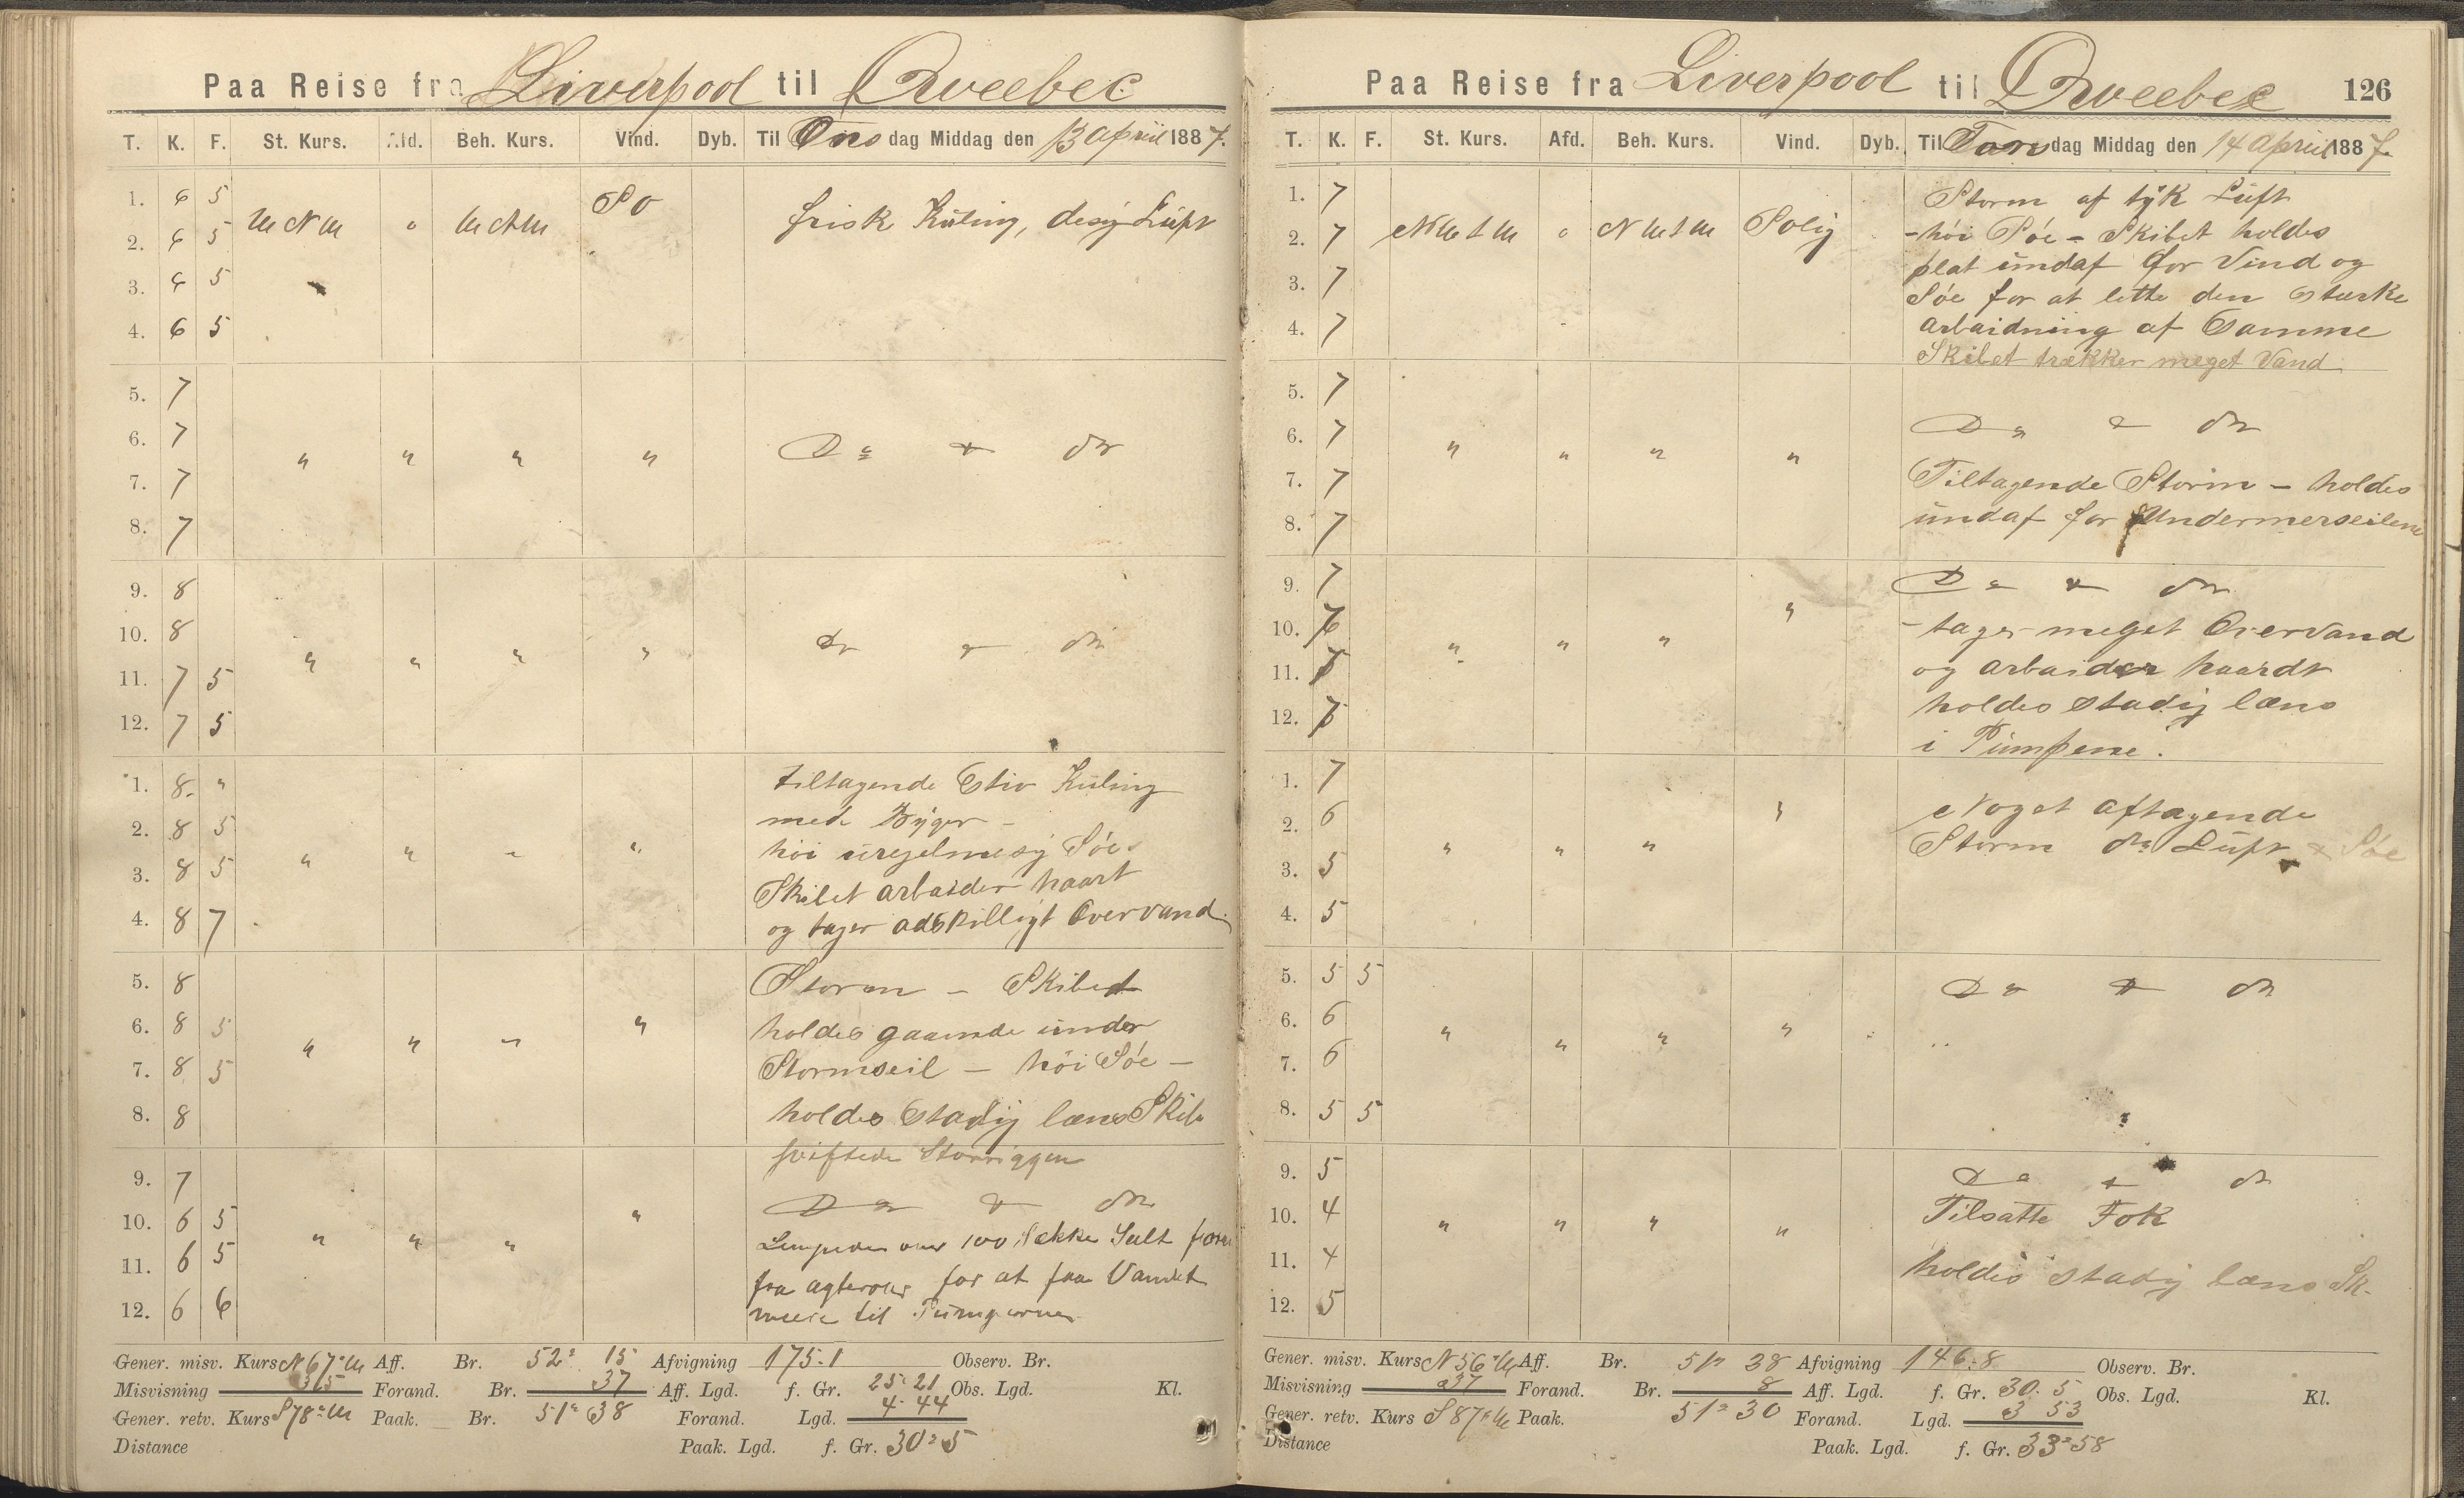 Paa Reise fra Liverpool til Qveebec
T. K. F. St. Kurs. Afd. Beh. Kurs. Vind. Dyb. Til Ons dag Middag den 13 April 1887.
1. 6 5
2. 6 5 W N W " W N W SO frisk Kuling, desig Luft
3. 6 5
4. 6 5
5. 7
6. 7 " " " " Do & do
7. 7
8. 7
9. 8
10. 8 " " " " Do & do
11. 7 5
12. 7 5
1. 8 " tiltagende Stiv Kuling
2. 8 5 med Byger –
3. 8 5 " " " " höi uregelmesig Söe.
Skibet arbaider haart
4. 8 7 og tager adskilligt Overvand.
5. 8 Storm – Skibet
6. 8 5 " " " " holdes gaaende under
7. 8 5 Stormseil – höi Söe –
8. 8 holdes Stadig læns Skib
sviftede Storriggen
9. 7 Do & do
10. 6 5 " " " " Lempede over 100 Sække Salt forn
11. 6 5 fra agterover for at faa Vandet
12. 6 6 meere til Pumperne
Gener. misv. Kurs N 67° W Aff. Br. 52° 15 Afvigning 175.1 Observ. Br.
Misvisning 35 Forand. Br. 37 Aff. Lgd. f. Gr. 25° 21 Obs. Lgd. Kl.
Gener. retv. Kurs S 78° W Paak. Br. 51° 38 Forand. Lgd. 4. 44
Distance Paak. Lgd. f. Gr. 30° 5
Paa Reise fra Liverpool til Qveebec 126
T. K. F. St. Kurs. Afd. Beh. Kurs. Vind. Dyb. Til Tors dag Middag den 14 April 1887.
1. 7 Storm af tyk Luft
2. 7 NWtW " NWtW Solig – höi Söe – Skibet holdes
plat undaf for Vind og
3. 7 Söe for at lette den sturke
4. 7 arbaidning af Samme
Skibet trækker meget Vand
5. 7
6. 7 " " " " Do & do
7. 7 Tiltagende Storm – holdes
8. 7 undaf for Undermerseilene
9. 7 Do & do
10. " " " " – tager meget Overvand
11. og arbaider haardt
12. holdes stadig læns
i Pumpene.
1. 7
2. 6 Noget aftagende
3. 5 " " " " Storm do Luft & Söe
4. 5
5. 5 5 Do & do
6. 6 " " " "
7. 6
8. 5 5
9. 5 Do & do
10. 4 " " " " Tilsatte Fok
11. 4 holdes stadig læns Sk.
12. 5
Gener. misv. Kurs N 56° W Aff. Br. 51° 38 Afvigning 146.8 Observ. Br.
Misvisning 37 Forand. Br. 8 Aff. Lgd. f. Gr. 30. 5 Obs. Lgd. Kl.
Gener. retv. Kurs S 87° W Paak. 51° 30 Forand. Lgd. 3 53
Distance Paak. Lgd. f. Gr. 33° 58